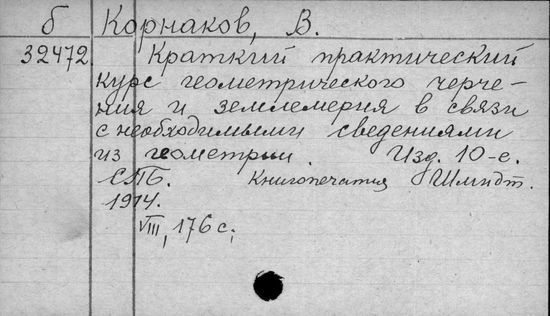 б Корнаков, В.
32472. Краткий практический
курс геометрического черче-
ния и землемерия в связи
с необходимыми сведениями
из геометрии. Изд. 10-е.
СПБ. Книгопечатня Шмидт.
1914.
VIII, 176 с;